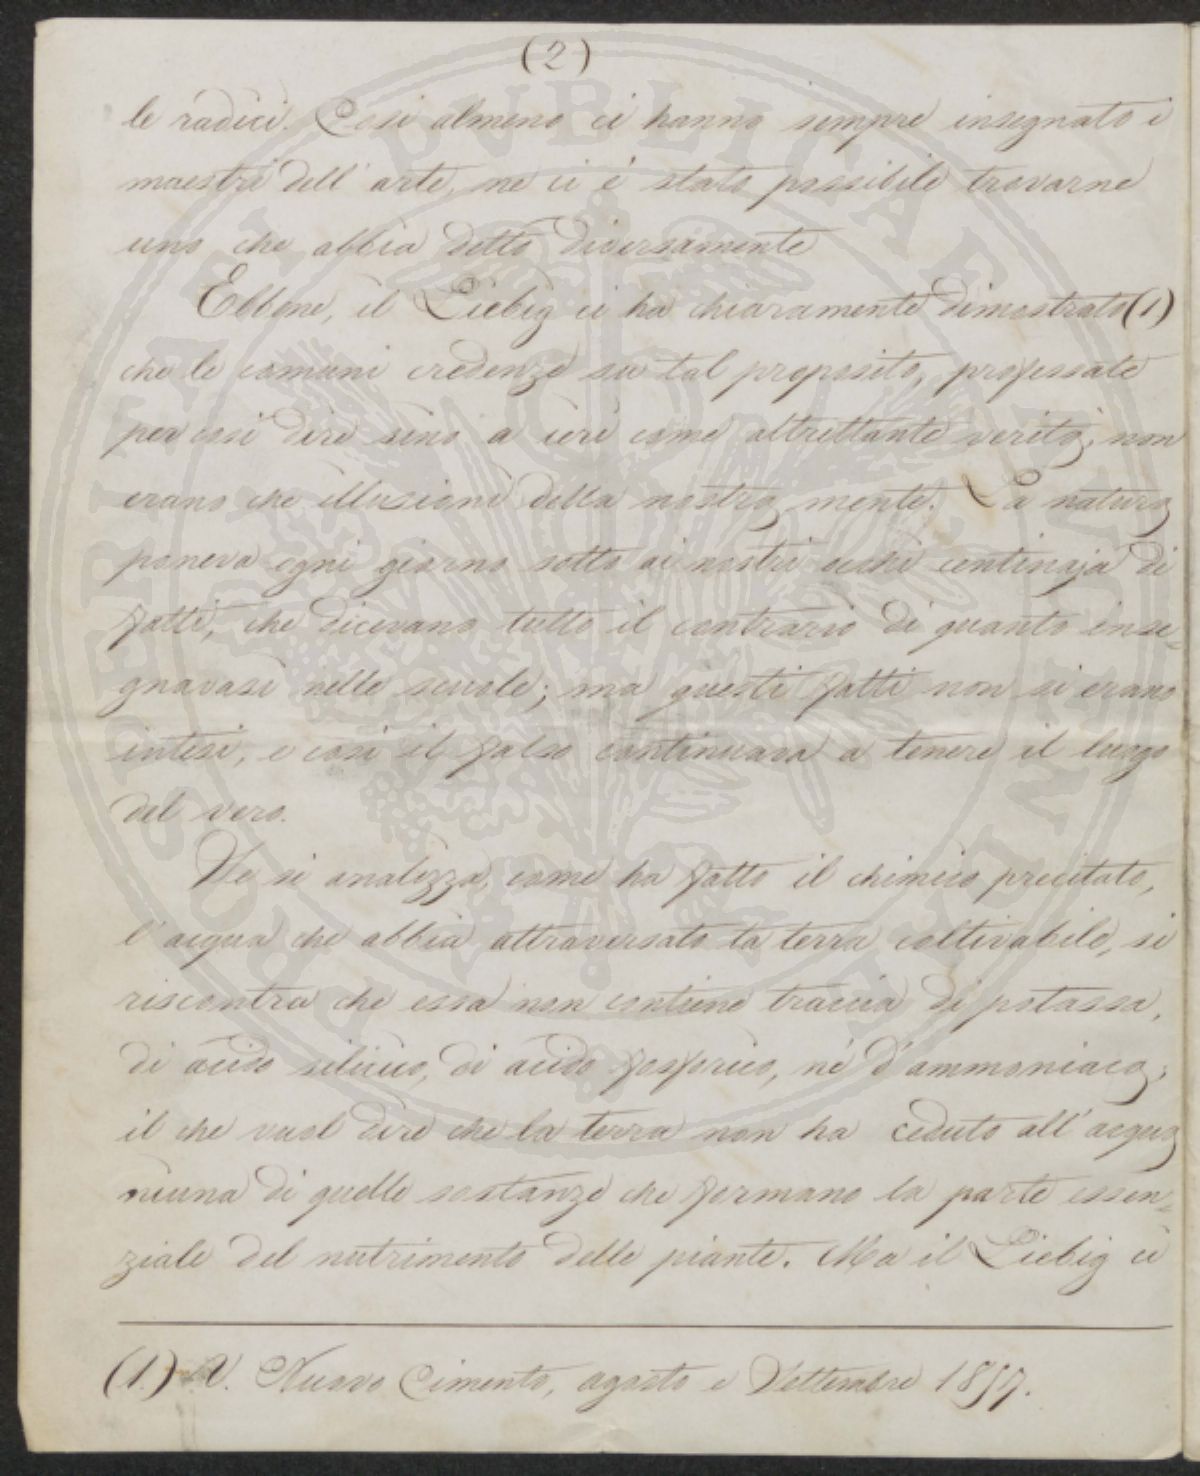 (2)
le radici. Così almeno ci hanno sempre insegnato i
maestri dell'arte, ne ci è stato possibile trovarne
uno che abbia detto diversamente
Ebbene, il Liebig ci ha chiaramente dimostrato (1)
che le comuni credenze su tal proposito, professate
per così dire sino a ieri come altrettante verità, non
erano che illusioni della nostra mente. La natura
poneva ogni giorno sotto ai nostri occhi centinaja di
fatti, che dicevano tutto il contrario di quanto inse-
gnavasi nelle scuole; ma questi fatti non si erano
intesi, e così il falso continuava a tenere il luogo
del vero.
Se si analizza, come ha fatto il chimico precitato,
l'acqua che abbia attraversato la terra coltivabile, si
riscontra che essa non contiene traccia di potassa,
di acido silicico, di acido fosforico, nè d'ammoniaca;
il che vuol dire che la terra non ha ceduto all'acqua
niuna di quelle sostanze che formano la parte essen-
ziale del nutrimento delle piante. Ma il Liebig ci
(1) V. Nuovo Cimento, agosto e Settembre 1857.